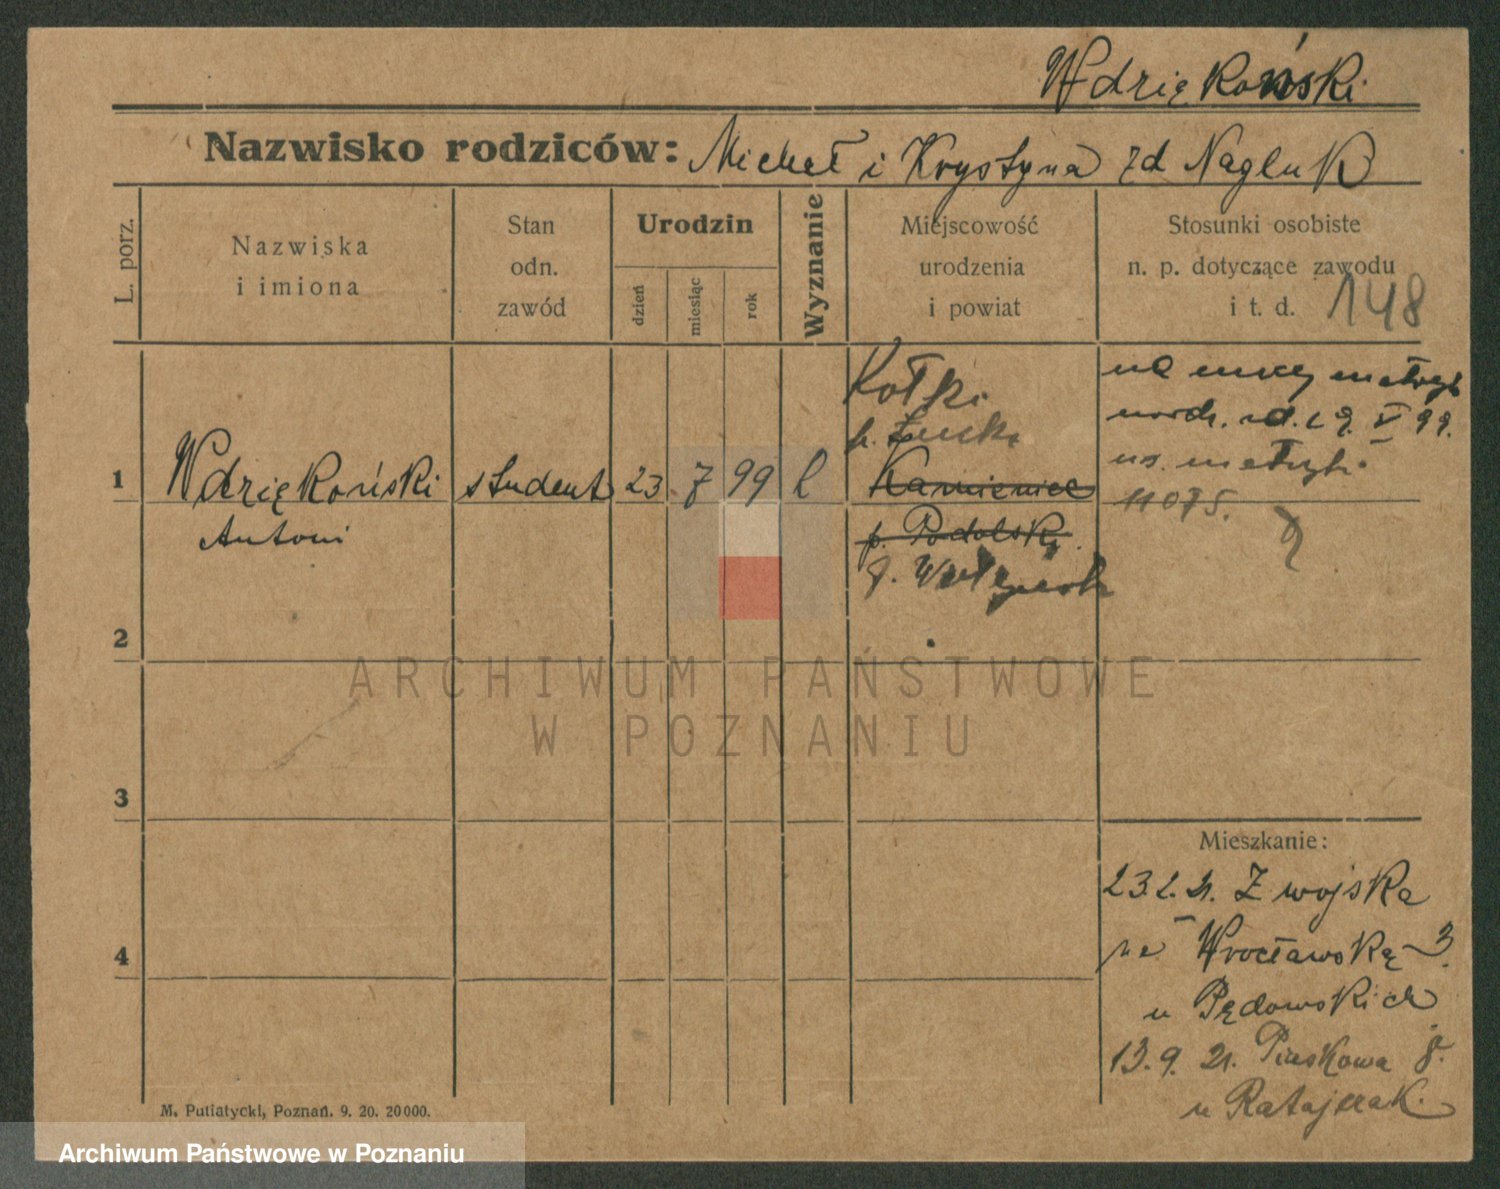 Wdziękoński
Nazwisko rodziców: Michał i Krystyna zd Nagluk
L. porz.
Nazwiska
i imiona
Stan
odn.
zawód
Urodzin
dzień
miesiąc
rok
Wyznanie
Miejscowość
urodzenia
i powiat
Stosunki osobiste
n. p. dotyczące zawodu
i t. d.
148
1
Wdziękoński
Antoni
student
23
7
99
Kołki
p. Łucki
Kamieniec
p. Podolski
na mocy metryk
V 99.
metryki
11075.
2
3
4
Mieszkanie:
23.2.21. Z wojska
na Wrocławską 3.
u Pędowskich
13.9. 21. Piaskowa 8.
u Ratajczak.
M. Putiatycki, Poznań. 9. 20. 20000.
ARCHIWUM PAŃSTWOWE
W POZNANIU
Archiwum Państwowe w Poznaniu